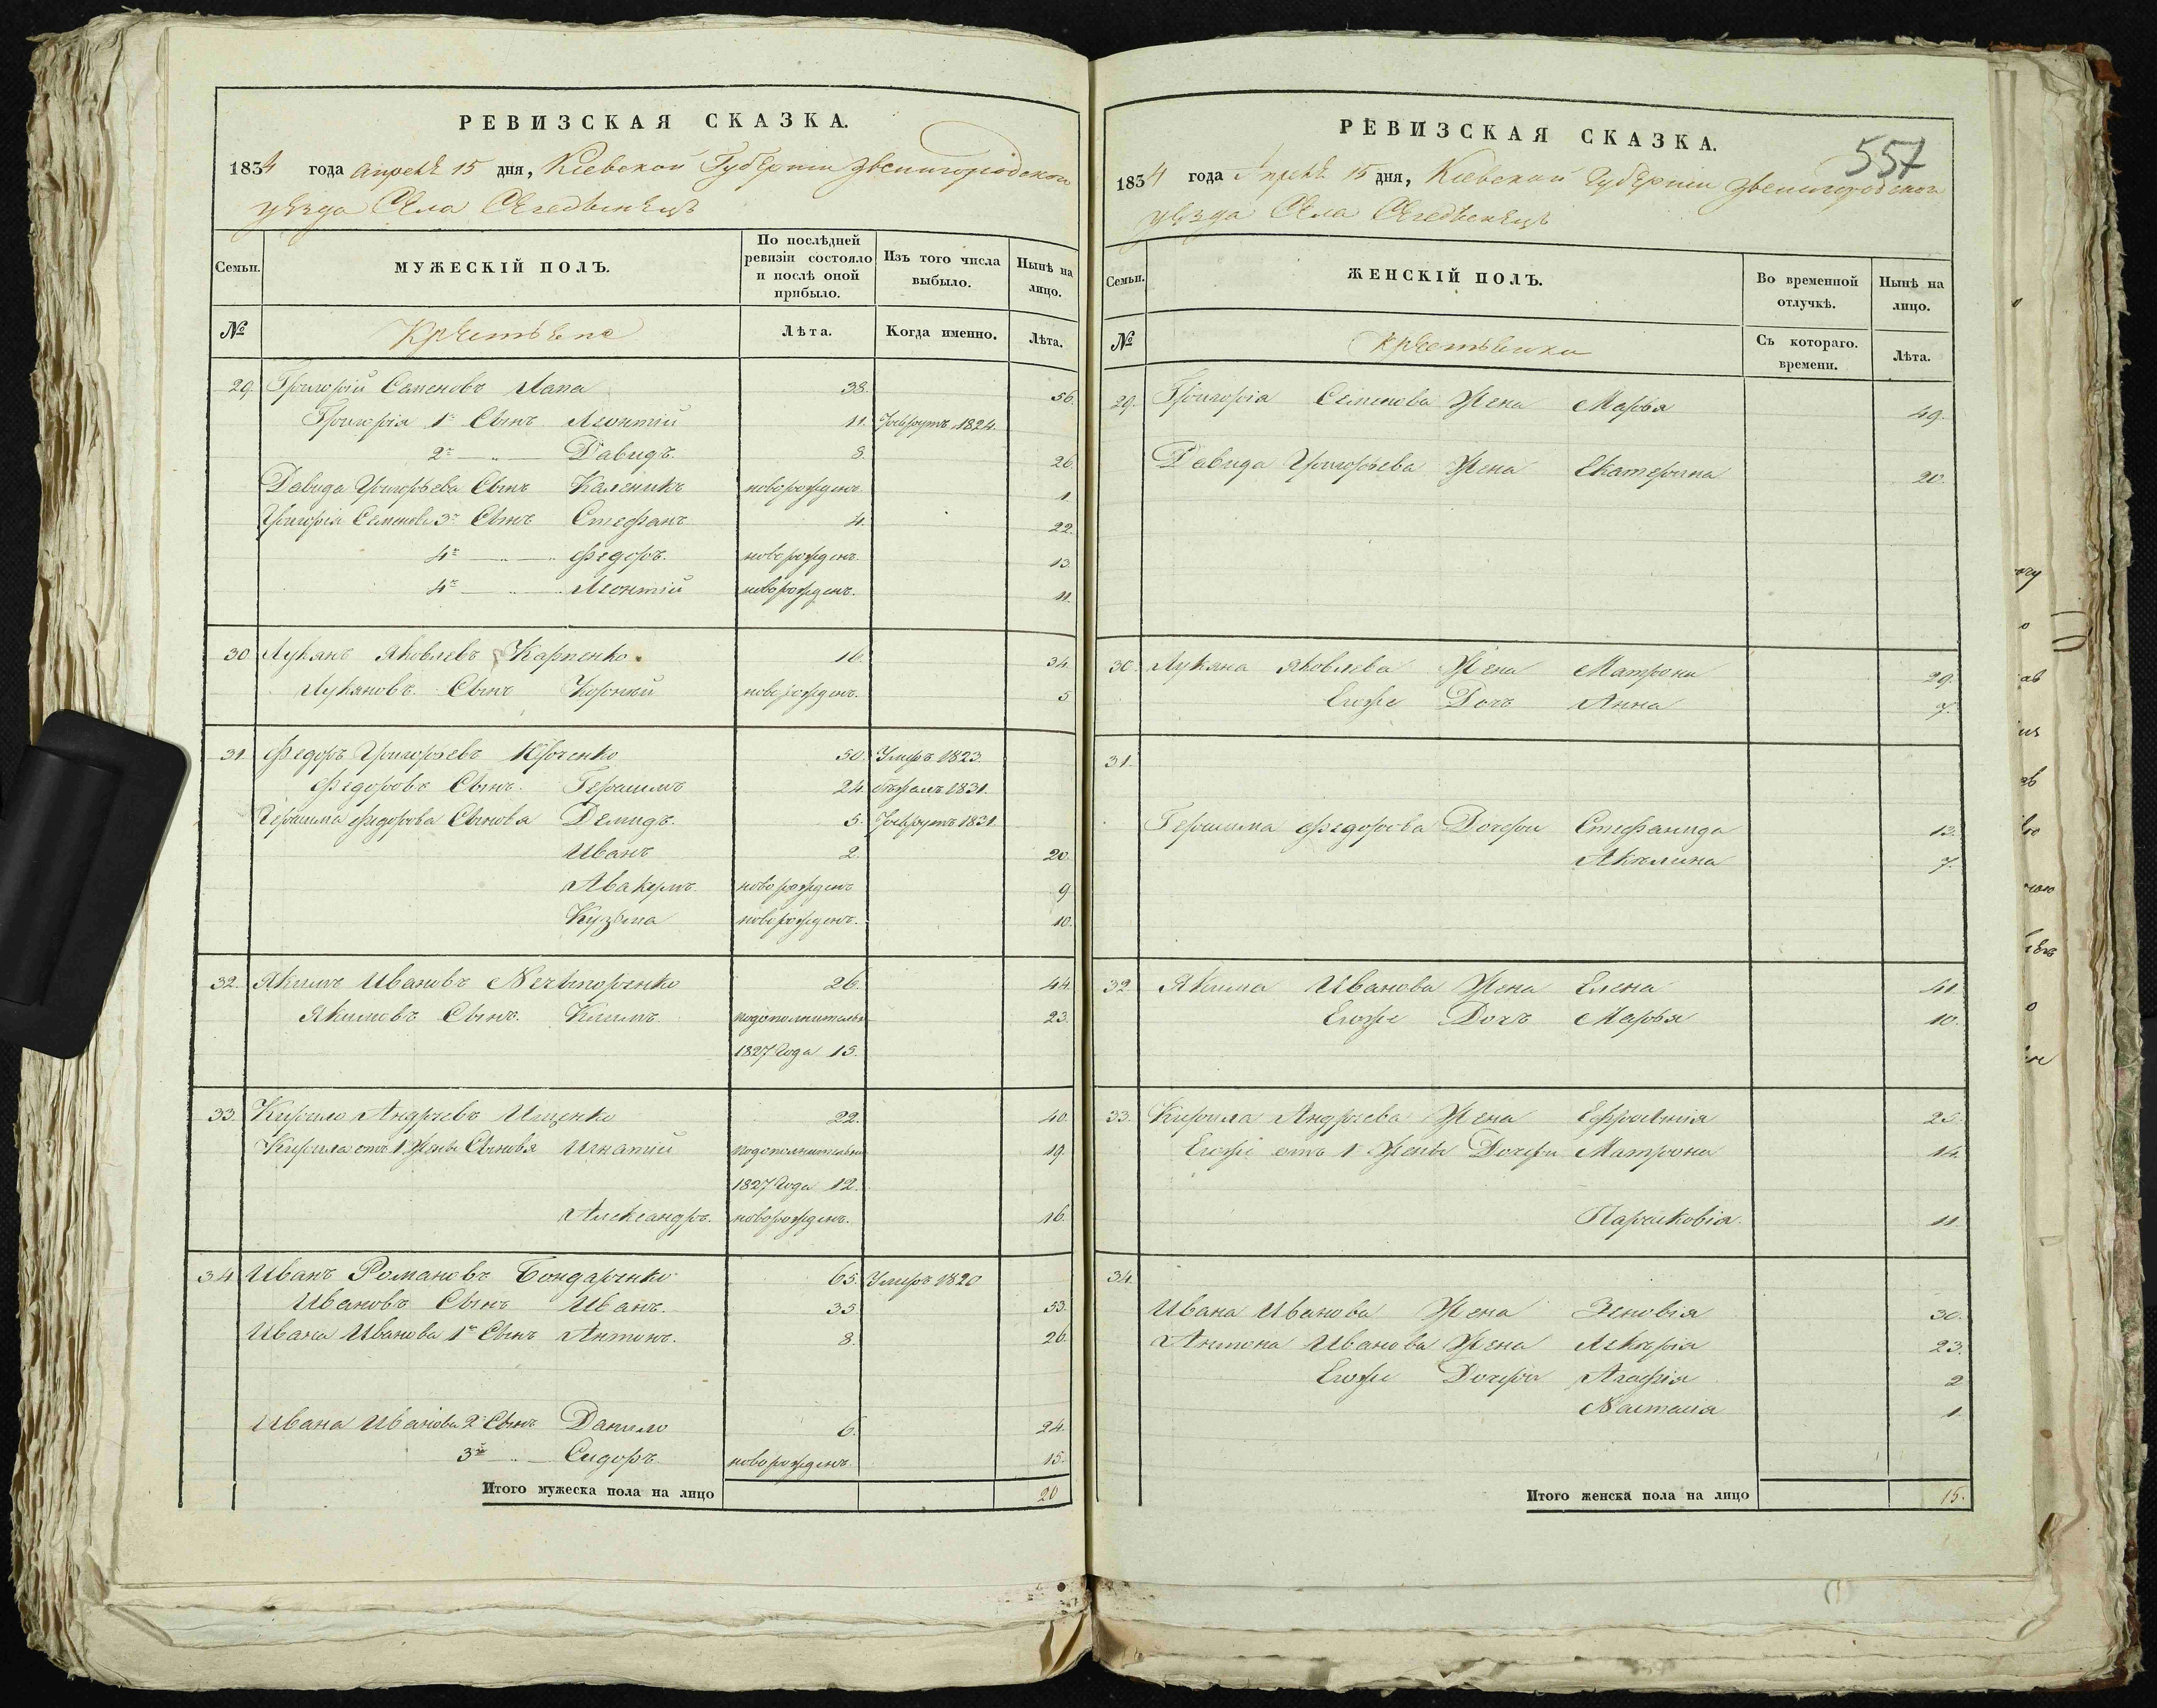 РЕВИЗСКАЯ СКАЗКА.
1834 года Апреля 15 дня, Кіевской Губерніи Звенигородскаго
уезда Села
Семьи. МУЖЕСКІЙ ПОЛЪ. По послѣдней ревизіи состояло и послѣ оной прибыло. Изъ того числа выбыло. Нынѣ на лицо.
№ Крестьяне Лѣта. Когда именно. Лѣта.
29. Григорій Семеновъ Лапа 38. 56.
Григорія 1й Сынъ Леонтій 11. Рекрутъ 1824.
2й — „ — Давидъ. 8. 26.
Давида Григорьева Сынъ Каленикъ новорожденъ. 1.
Григорія Семенова 3й Сынъ Стефанъ 4. 22.
4й — „ — Федоръ. новорожденъ. 13.
4й — „ — Леонтій новорожденъ. 11.
30. Лукянъ Яковлевъ Карпенко 16. 34.
Лукяновъ Сынъ Корнѣй новорожденъ. 5
31. Федоръ Григорьевъ Юрченко 50. Умеръ 1823.
Федоровъ Сынъ. Герасимъ 24. бѣжалъ 1831.
Герасима Федорова Сынова Демидъ. 5. Рекрутъ 1831.
Иванъ 2. 20.
Авакумъ новорожденъ 9
Кузьма новорожденъ. 10.
32. Якимъ Ивановъ Нечыпоренко 26. 44.
Якимовъ Сынъ. Климъ подополнительн 23.
1827 Года 15.
33. Кирило Андреевъ Ищенко 22. 40.
Кирила отъ 1 Жены Сыновя Игнатій подополнительн 19.
1827 Года 12.
Александръ. новорожденъ. 16.
34. Иванъ Романовъ Бондаренко 65. Умеръ 1820
Ивановъ Сынъ Иванъ. 35. 53.
Ивана Иванова 1й Сынъ Антонъ. 8. 26.
Ивана Иванова 2й Сынъ Данило 6. 24.
3й — „ — Сидоръ. новорожденъ. 15.
Итого мужеска пола на лицо 20
557
РЕВИЗСКАЯ СКАЗКА.
1834 года Апреля 15 дня, Кіевской Губерніи Звенигородскаго
уезда Села
Семьи. ЖЕНСКІЙ ПОЛЪ. Во временной отлучкѣ. Нынѣ на лицо.
№ Крестьянки Съ котораго. времени. Лѣта.
29. Григорія Семенова Жена Марья 49.
Давида Григорьева Жена Екатерина 20.
30. Лукяна Яковлева Жена Матрона 29.
Егоже Доч Анна 7.
31.
Герасима Федорова Дочери Стефанида 13.
Акилина 7.
32. Якима Иванова Жена Елена 41.
Егоже Дочъ Марья 10.
33. Кирила Андреева Жена Ефросынія 25.
Егоже отъ 1 Жены Дочери Матрона 14.
Парасковія. 11.
34.
Ивана Иванова Жена Зеновія 30.
Антона Иванова Жена Лукерія 23.
Егоже Дочери Агафія 2
Настасія 1.
Итого женска пола на лицо 15.